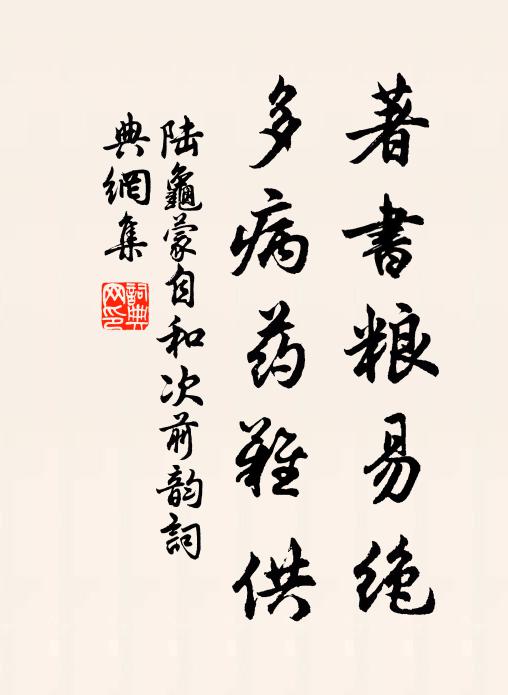 著書粮易绝
多病药難供
陆龜蒙自和次前韵詞
典網集
詞典网印